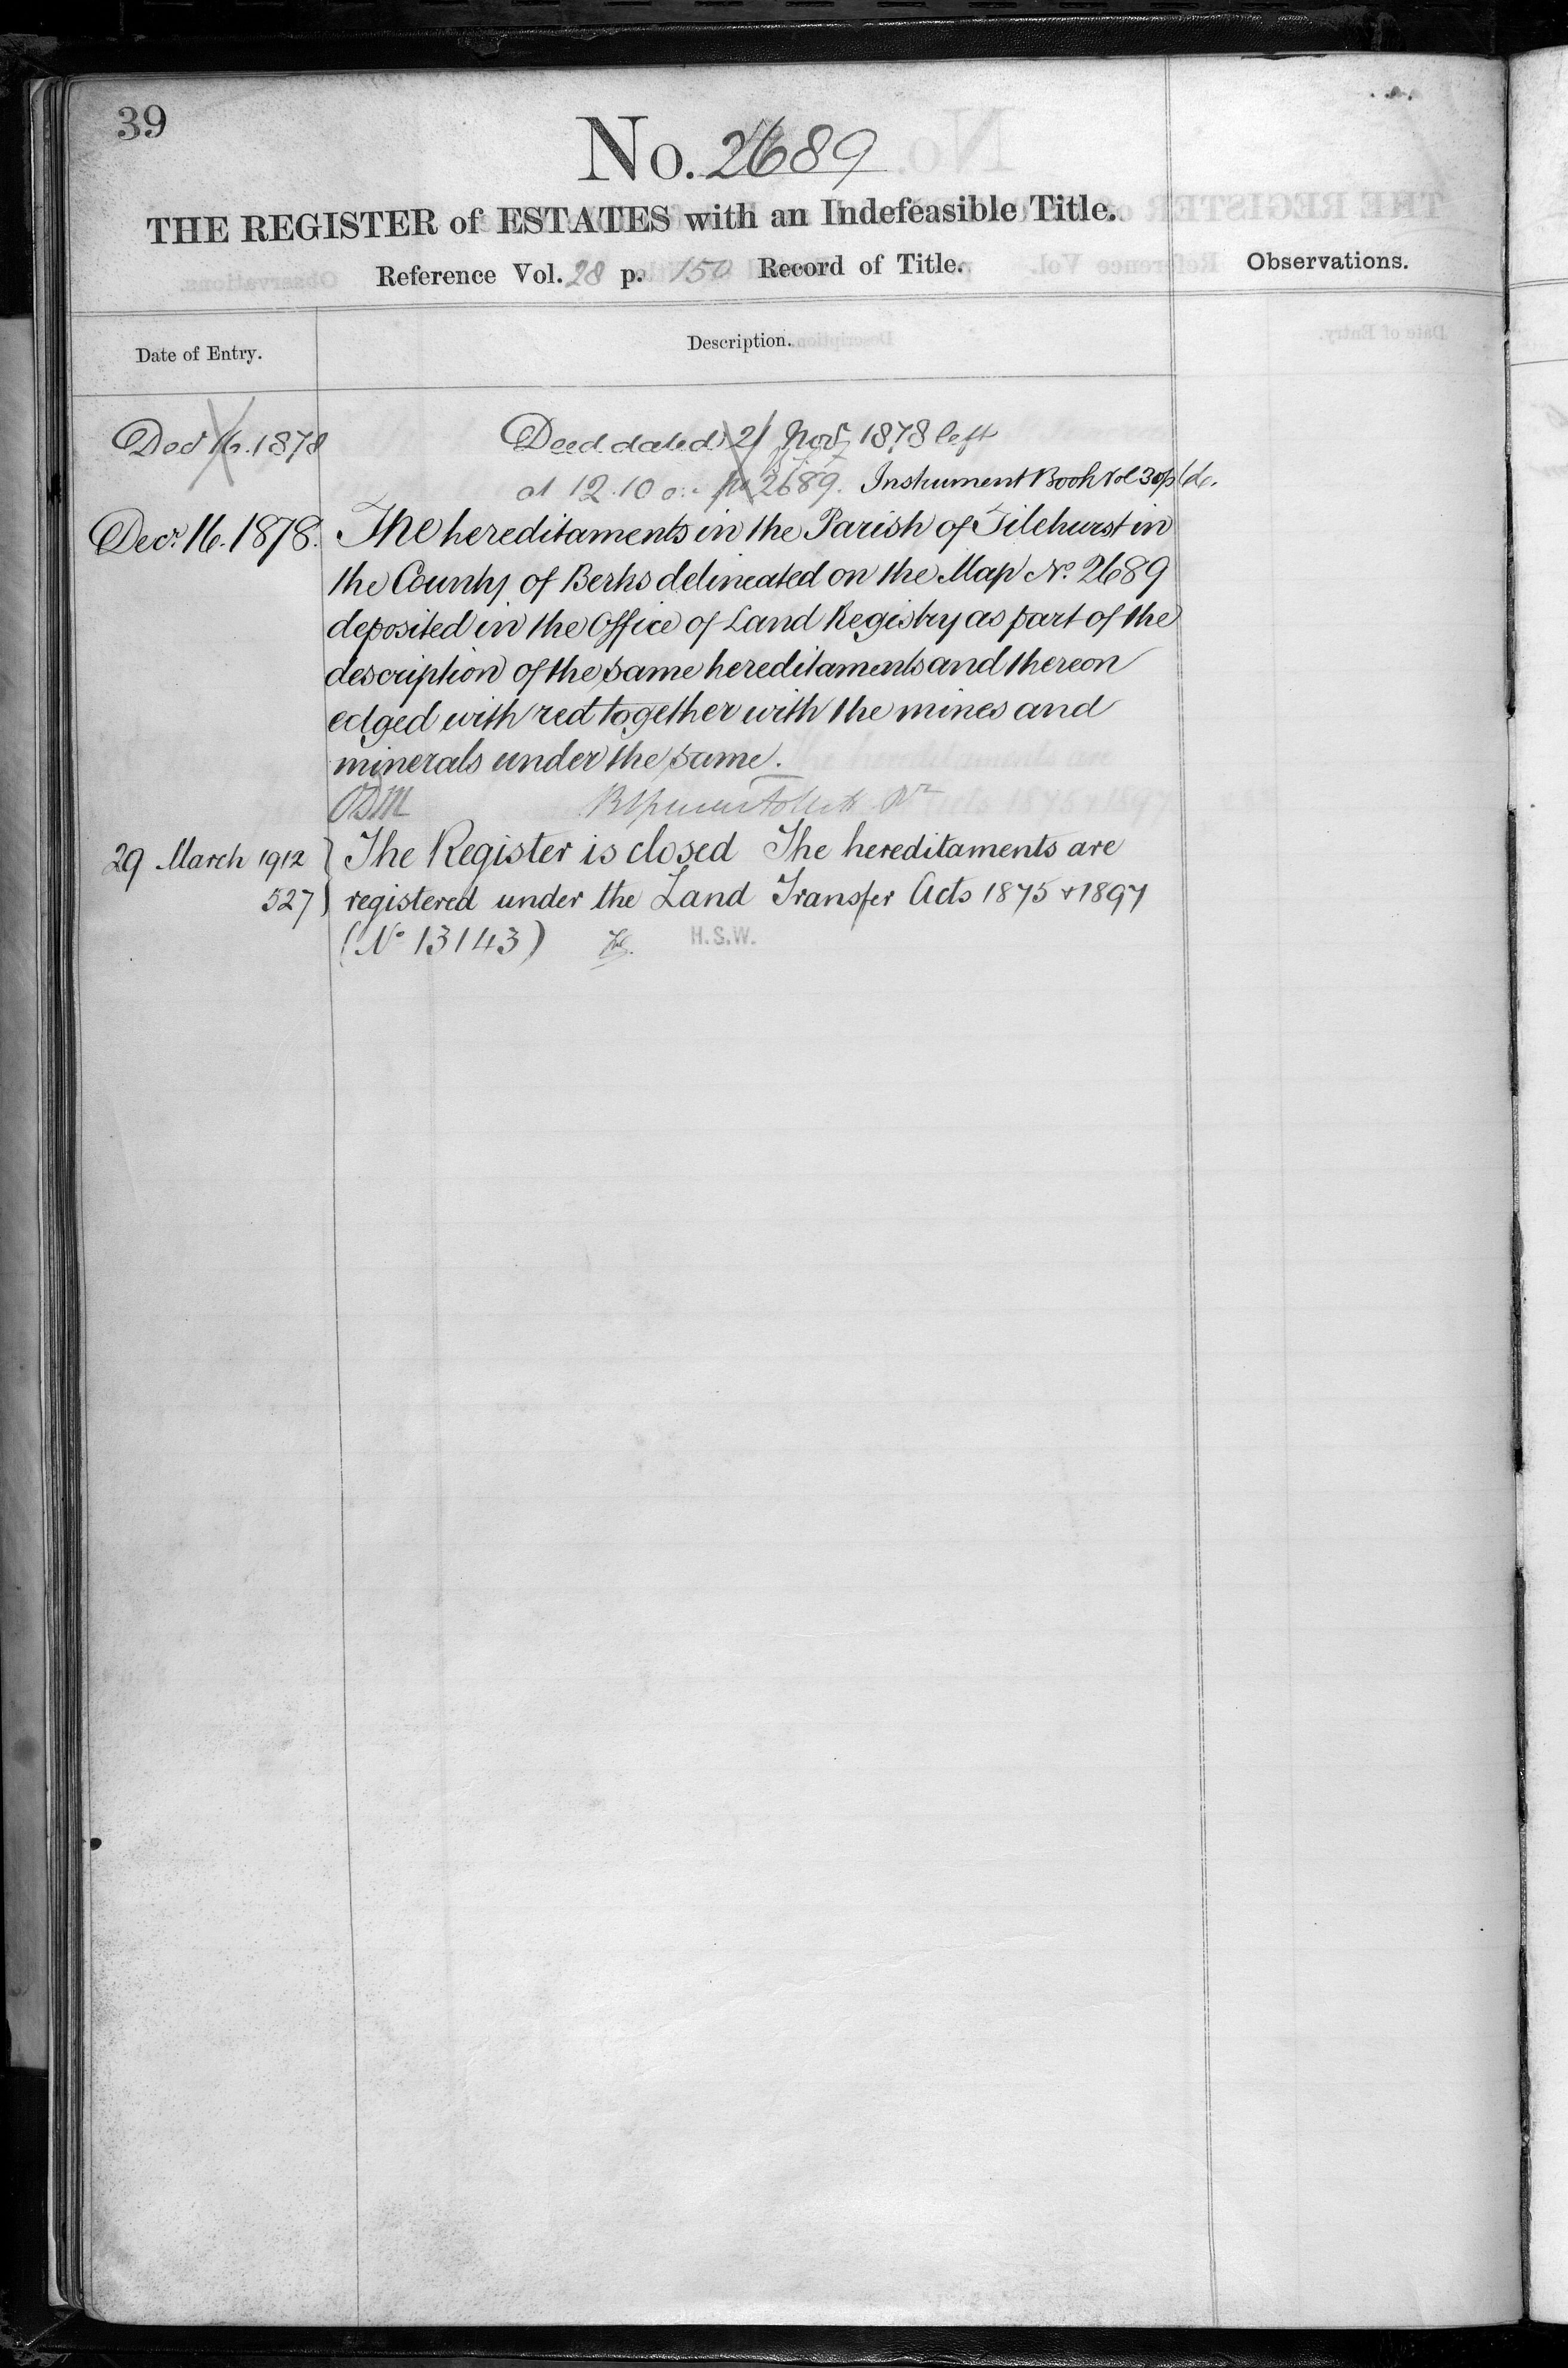 39
No. 2689
THE REGISTER of ESTATES with an Indefeasible Title.
Reference Vol. 28 p. 150 Record of Title.
Observations.
Date of Entry.
Description.
Decr 16. 1878
Deed dated 21 Novr 1878 left
at 12.10 2689. Instrument Book Vol 30 p
Decr. 16. 1878. The hereditaments in the Parish of Tilehurst in
the County of Berks delineated on the Map No. 2689
deposited in the Office of Land Registry as part of the
description of the same hereditaments and thereon
edged with red together with the mines and
minerals under the same.
29 March 1912 } The Register is closed The hereditaments are
527 } registered under the Land Transfer Acts 1875 & 1897
(No 13143) H.S.W.